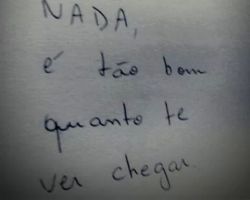 NADA,
é tão bom
quanto te
ver chegar.